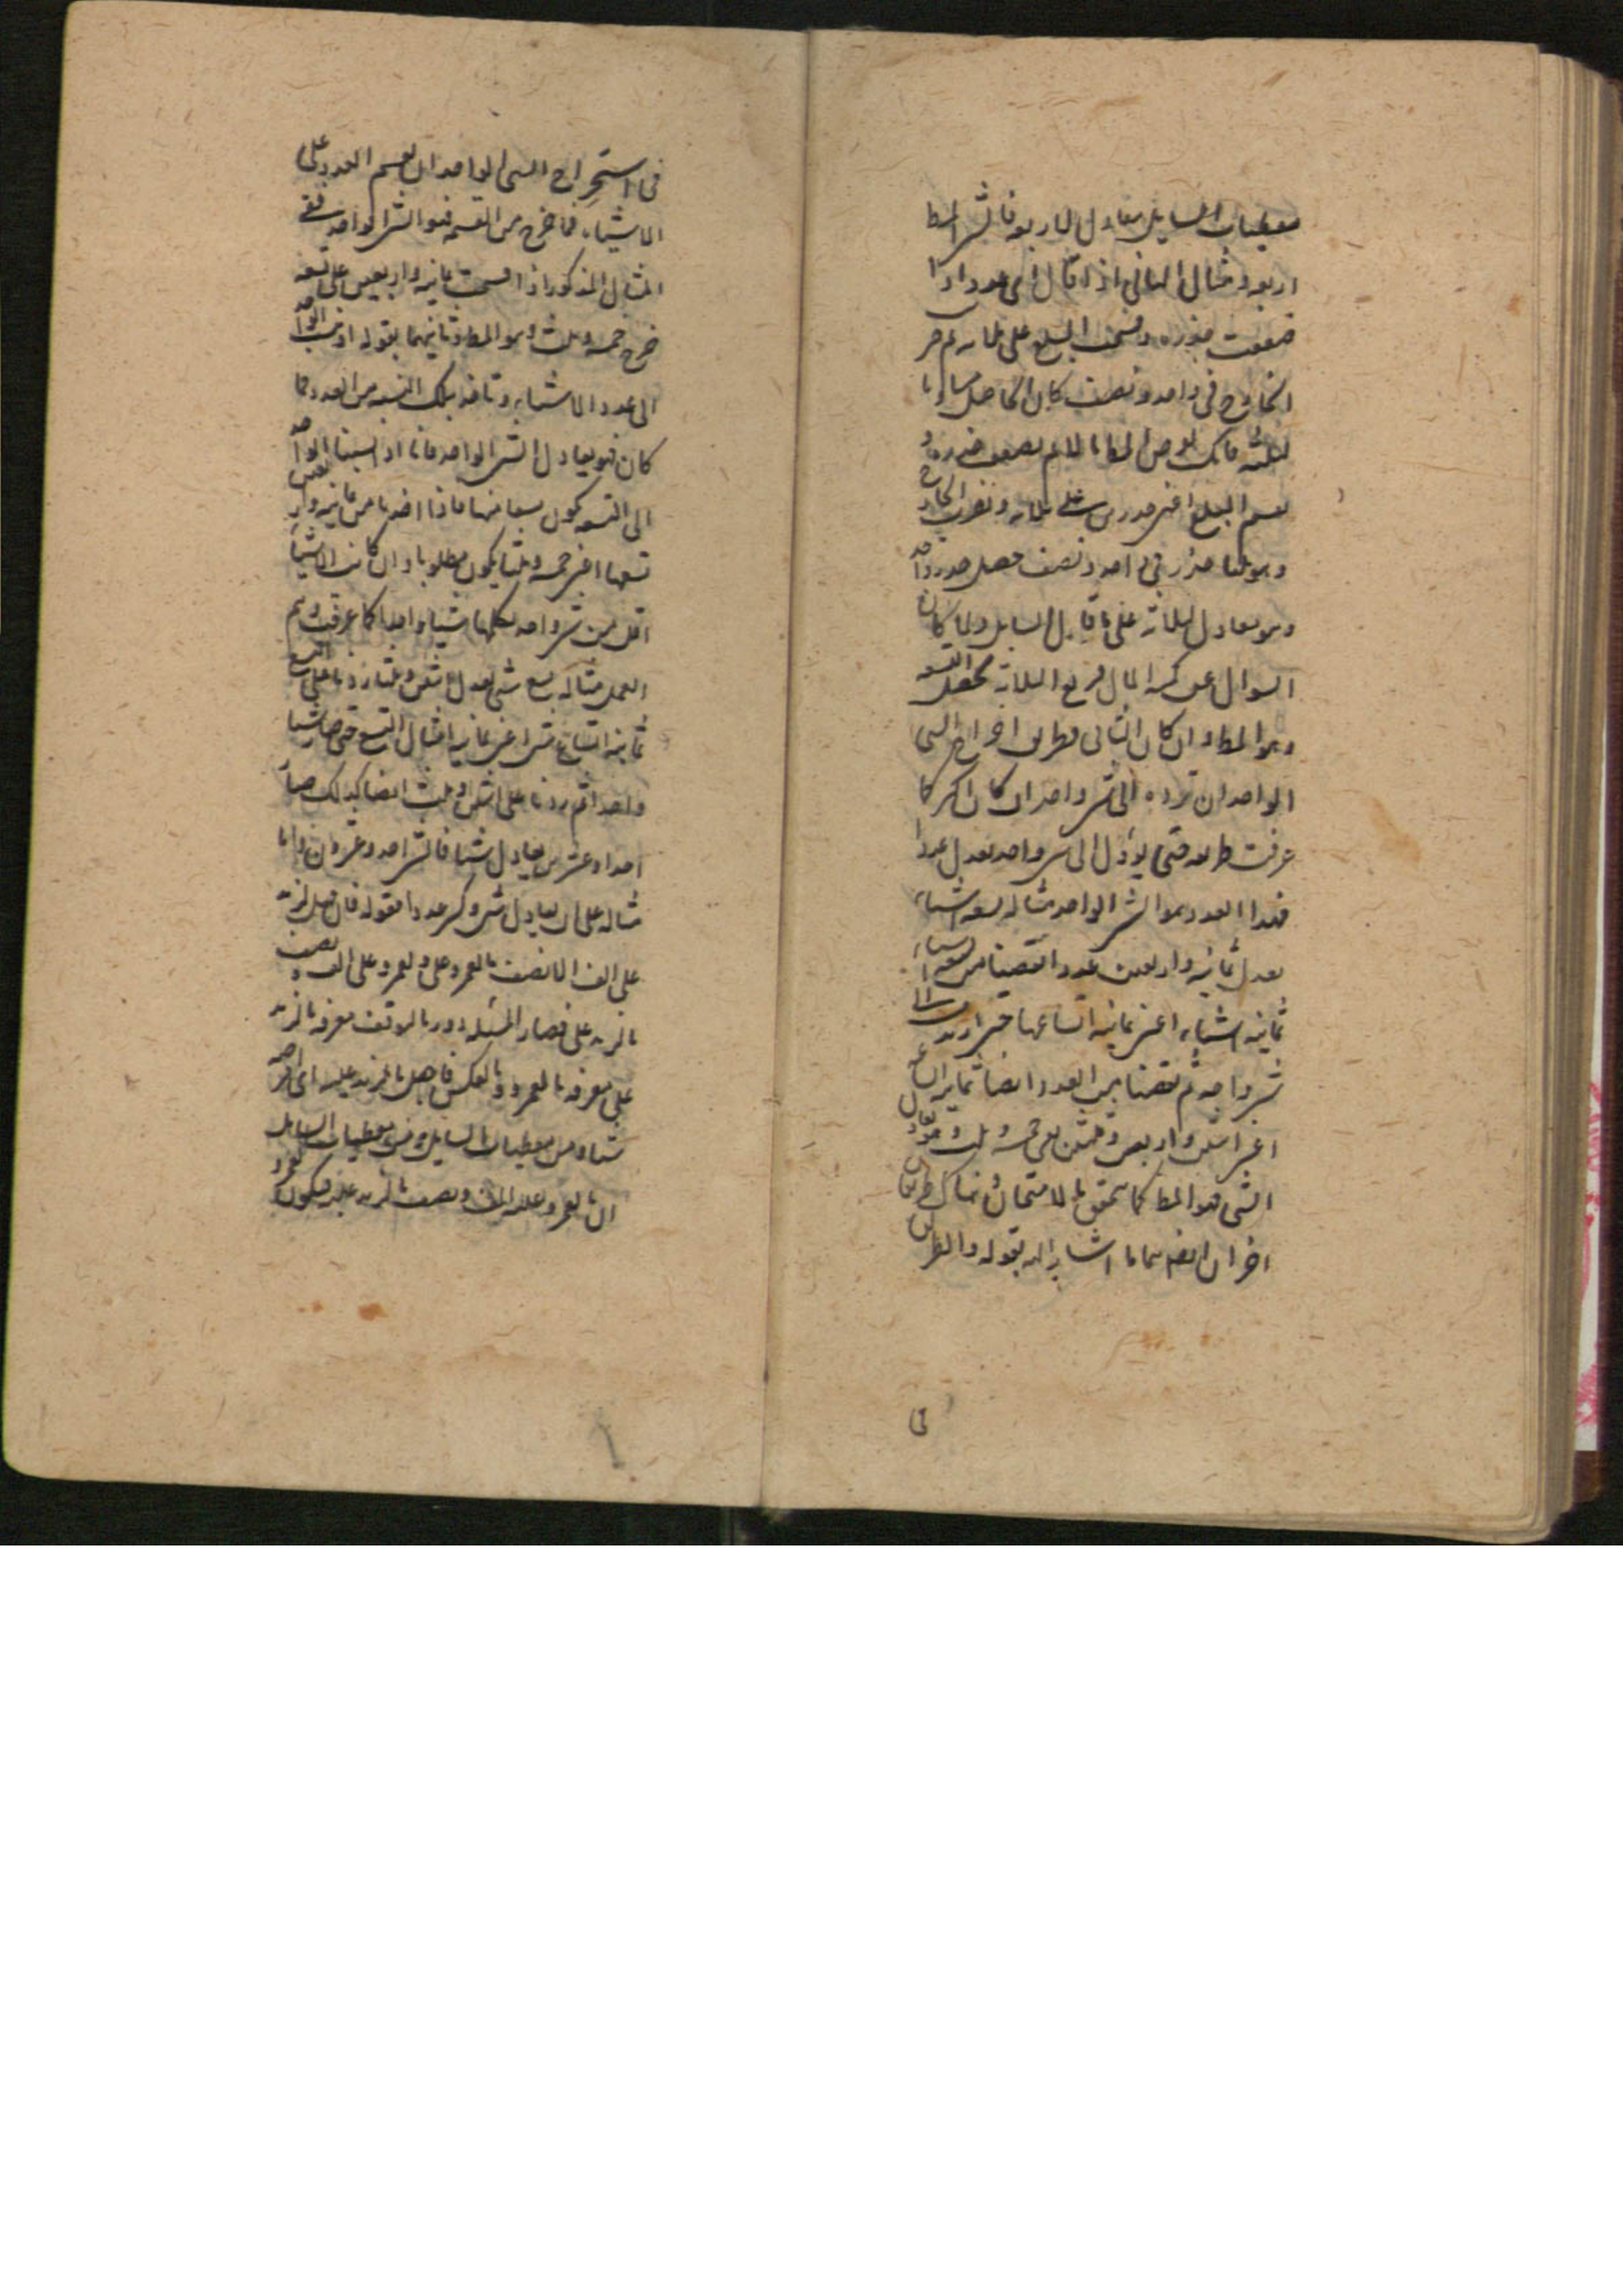 معطيات السايل معادل لاربعة فالشئ المط
اربعة ومثال الثاني اذا قال اى عدد اذا
ضعفت جذره وقسمت المبلغ على ثلاثة ثم ضر
الخارج فى واحد ونصف كان الحاصل مساويا
لثلثة فانك تفرض المط مالا ثم تضعف جذره و
تقسم المبلغ اعنى جذرين على ثلاثة وتضرب الخارج
وهو ثلثا جذر فى واحد ونصف حصل جذر واحد
وهو يعادل لثلاثة على ما قال السايل ولما كان
السوال عن كمية المال فربع الثلاثة تحصل التسعة
وهو المط وان كان الثاني فطريق اخراج الشئ
الواحد ان ترده الى شئ واحد ان كان اكثر كما
عرفت طريقه حتى يؤل الى شئ واحد يعدل عددا
فهذا العدد هو الشئ الواحد مثاله تسعة اشياء
تعدل ثمانية واربعين عددا نقصنا من تسعة اشياء
ثمانية اشياء اعنى ثمانية اتساعها حتى ارتد الى
شئ واحد ثم نقصنا من العدد ايضا ثمانية اتساع
اعنى اثنين واربعين وثلثين بقى خمسة وثلث وهو يعادل
الشئ فهو المط كما تحقق بالامتحان وهناك طريقان
اخران ايضا هما ما اشار اليه بقوله والطريق
فى
فى استخراج الشئ الواحد ان تقسم العدد على
الاشياء فما خرج من القسمة فهو الشئ الواحد ففى
المثال المذكور اذا قسمت ثمانية واربعين على تسعة
خرج خمسة وثلث وهو المط وثانيهما بقوله او تنسب الواحد
الى عدد الاشياء وتاخذ بتلك النسبة من العدد فما
كان فهو يعادل الشئ الواحد فانا اذا نسبنا الواحد
الى التسعة يكون تسعا منها فاذا اخذنا من ثمانية واربعين
تسعها اعنى خمسة وثلثا يكون مطلوبا وان كانت الاشياء
اقل من شئ واحد تكملها شيئا واحدا كما عرفت وتتم
العمل مثاله تسع شئ يعدل اثنين وثلثا زدنا على التسع
ثمانية اتساع شئ اعنى ثمانية امثال التسع حتى صار شيئا
واحدا ثم زدنا على اثنين وثلث ايضا كذلك صار
احدا وعشرين يعادل شيئا فالشئ احد وعشرون واما
مثاله على ان يعادل شئ وكسر عددا فقوله فان قيل لزيد
على الف الا نصف ما لعمرو على ولعمرو على الف و نصف
ما لزيد على فصار المسئلة دورية لتوقف معرفة ما لزيد
على معرفة ما لعمرو وبالعكس فاجعل ما لزيد عليه اى افرضه
شيئا ومن معطيات السايل ومن معطيات السايل
ان ما لعمرو عليه الف ونصف ما لزيد عليه فيكون لعمرو